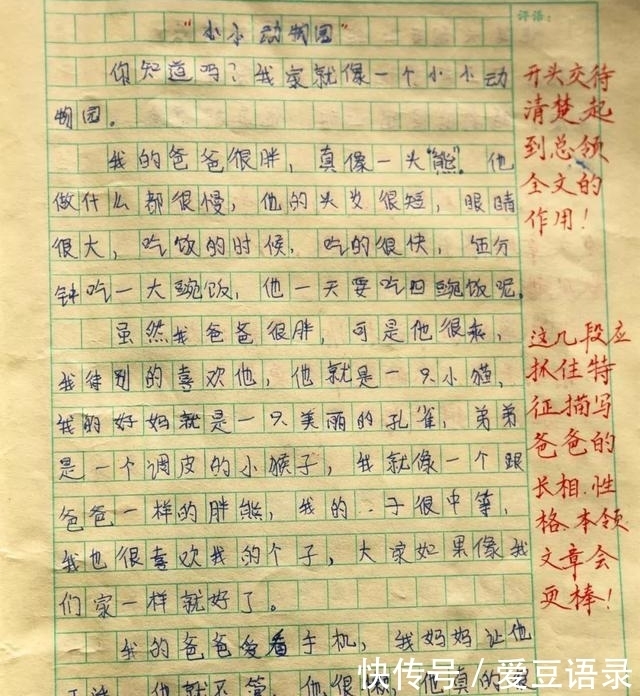 评语:
"小小动物园"
你知道吗?我家就像一个小小动
物园。
我的爸爸很胖,真像一头"熊"。他
做什么都很慢,他的头发很短,眼睛
很大,吃饭的时候,吃的很快,五分
钟吃一大碗饭,他一天要吃四碗饭呢。
虽然我爸爸很胖,可是他很柔,
我待别的喜欢他,他就是一只小猫,
我的好妈就是一只美丽的孔雀,弟弟
是一个调皮的小猴子,我就像一个跟
爸爸一样的胖熊,我的 子很中等,
我也很喜欢我的个子,大家如果像我
们家一样就好了。
我的爸爸爱看手机,我妈妈让他
他就不管,他很
开头交待
清楚起
到总领
全文的
作用!
这几段应
抓住特
征描写
爸爸的
长相.性
格.本领
文章会
更棒!
快传号/爱豆语录